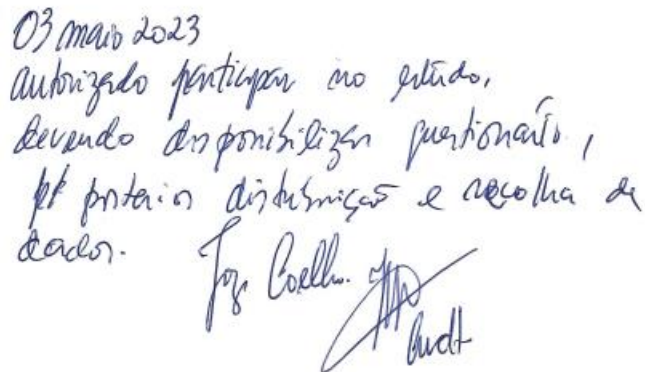 03 maio 2023
autorizado participar no estudo,
devendo disponibilizar questionário,
pª posterior distribuição e recolha de
dados.
Coelho.